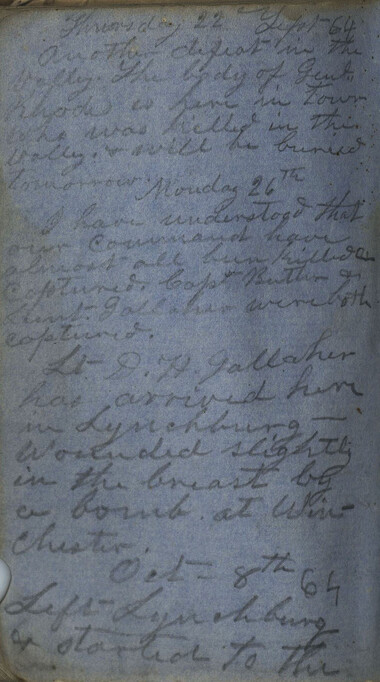 Thursday 22 Sept 64
Another defeat in the
Vally. The body of Genl.
Rhode is here in town
who was killed in this
Vally. & will be buried
tomorrow.
Monday 26th
I have understood that
our Command have
almost all been killed or
captured. Capt Butler &
Lieut Gallaher were both
captured.
Lt. D. H. Gallaher
has arrived here
in Lynchburg —
Wounded slightly
in the breast by
a bomb at Win-
chester.
Oct - 8th 64
Left Lynchburg
& started to the